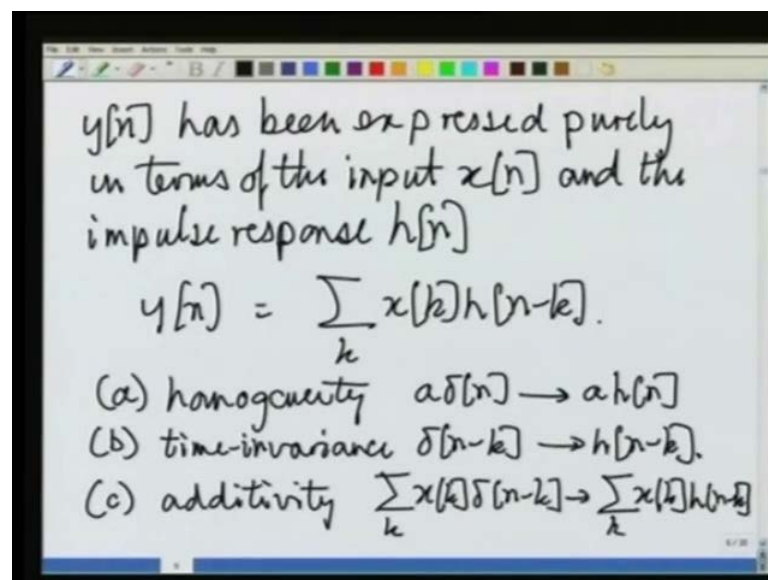 File Edit View Insert Actions Tools Help
B I
y[n] has been expressed purely
in terms of the input x[n] and the
impulse response h[n]
y[n] = ∑ x[k]h[n-k].
k
(a) homogeneity aδ[n] → ah[n]
(b) time-invariance δ[n-k] → h[n-k].
(c) additivity ∑ x[k]δ[n-k] → ∑ x[k]h[n-k]
k k